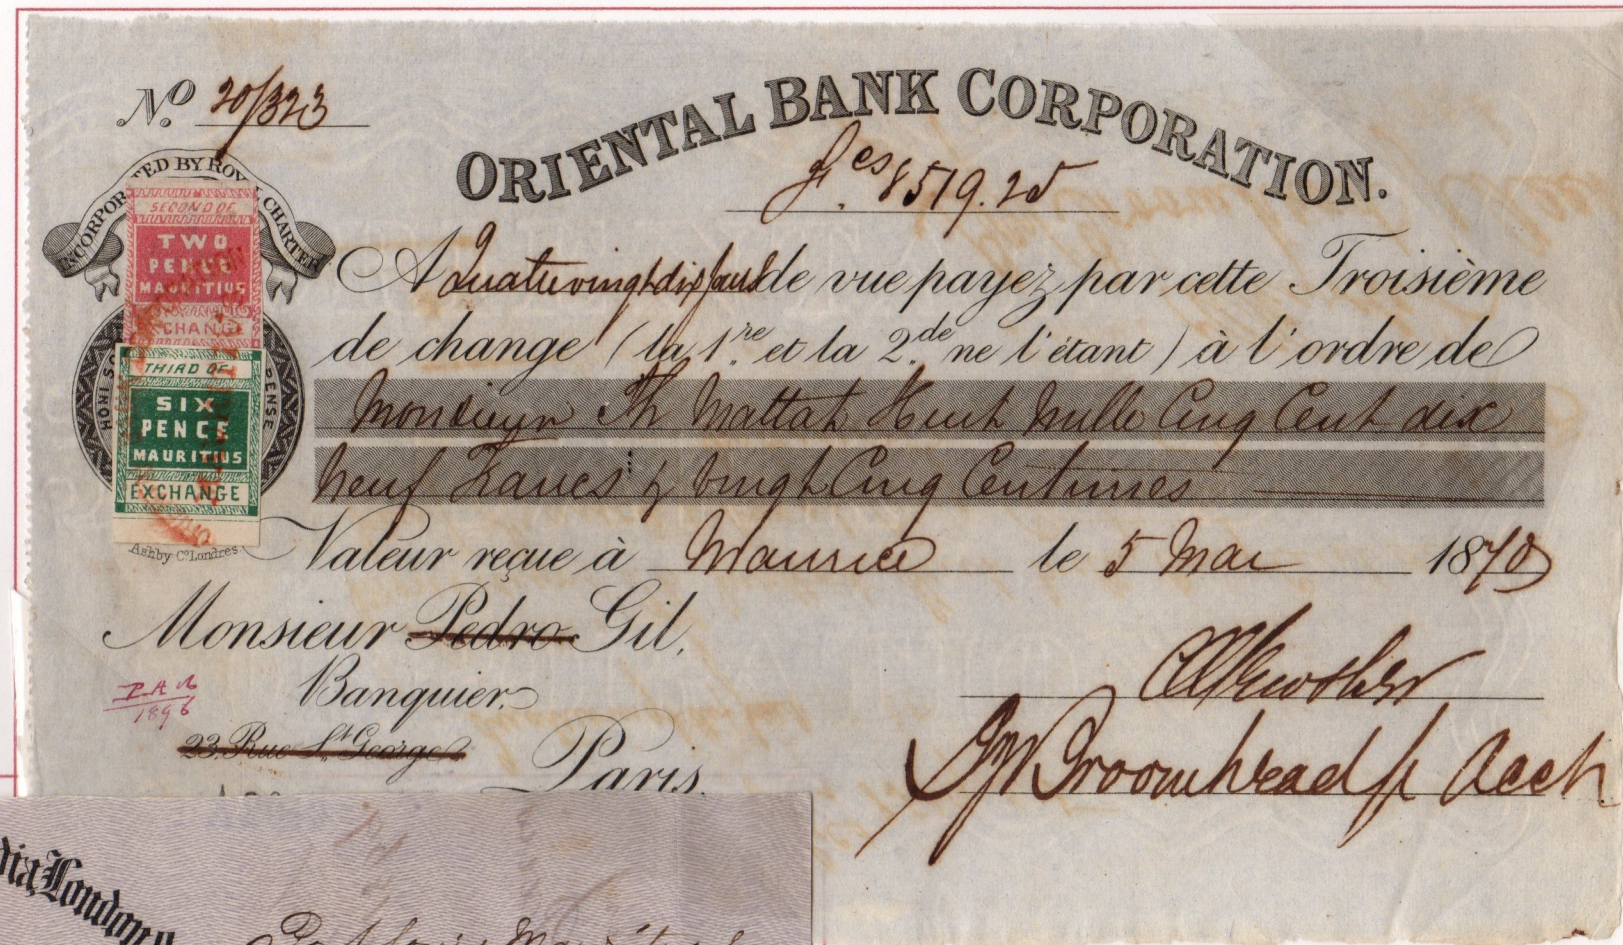 No 20/323
ORIENTAL BANK CORPORATION.
f.cs 8519.25
INCORPORATED BY ROYAL CHARTER
SECOND OF
TWO
PENCE
MAURITIUS
EXCHANGE
THIRD OF
SIX
PENCE
MAURITIUS
EXCHANGE
HONI S
PENSE
Ashby Co. Londres
A Quatrevingt dix jours de vue payez par cette Troisième
de change (la 1re et la 2de ne l'étant) à l'ordre de
Monsieur Th Mattah Huit Mille Cinq Cent dix
Neuf Francs & vingt Cinq Centimes
Valeur reçue à Maurice le 5 Mai 1870
Monsieur Pedro Gil,
Banquier,
23. Rue St. George
Paris.
1896
Broomhead p Acct
dia, London